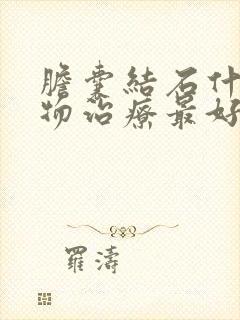 膽囊結石什
物治療最好
羅濤